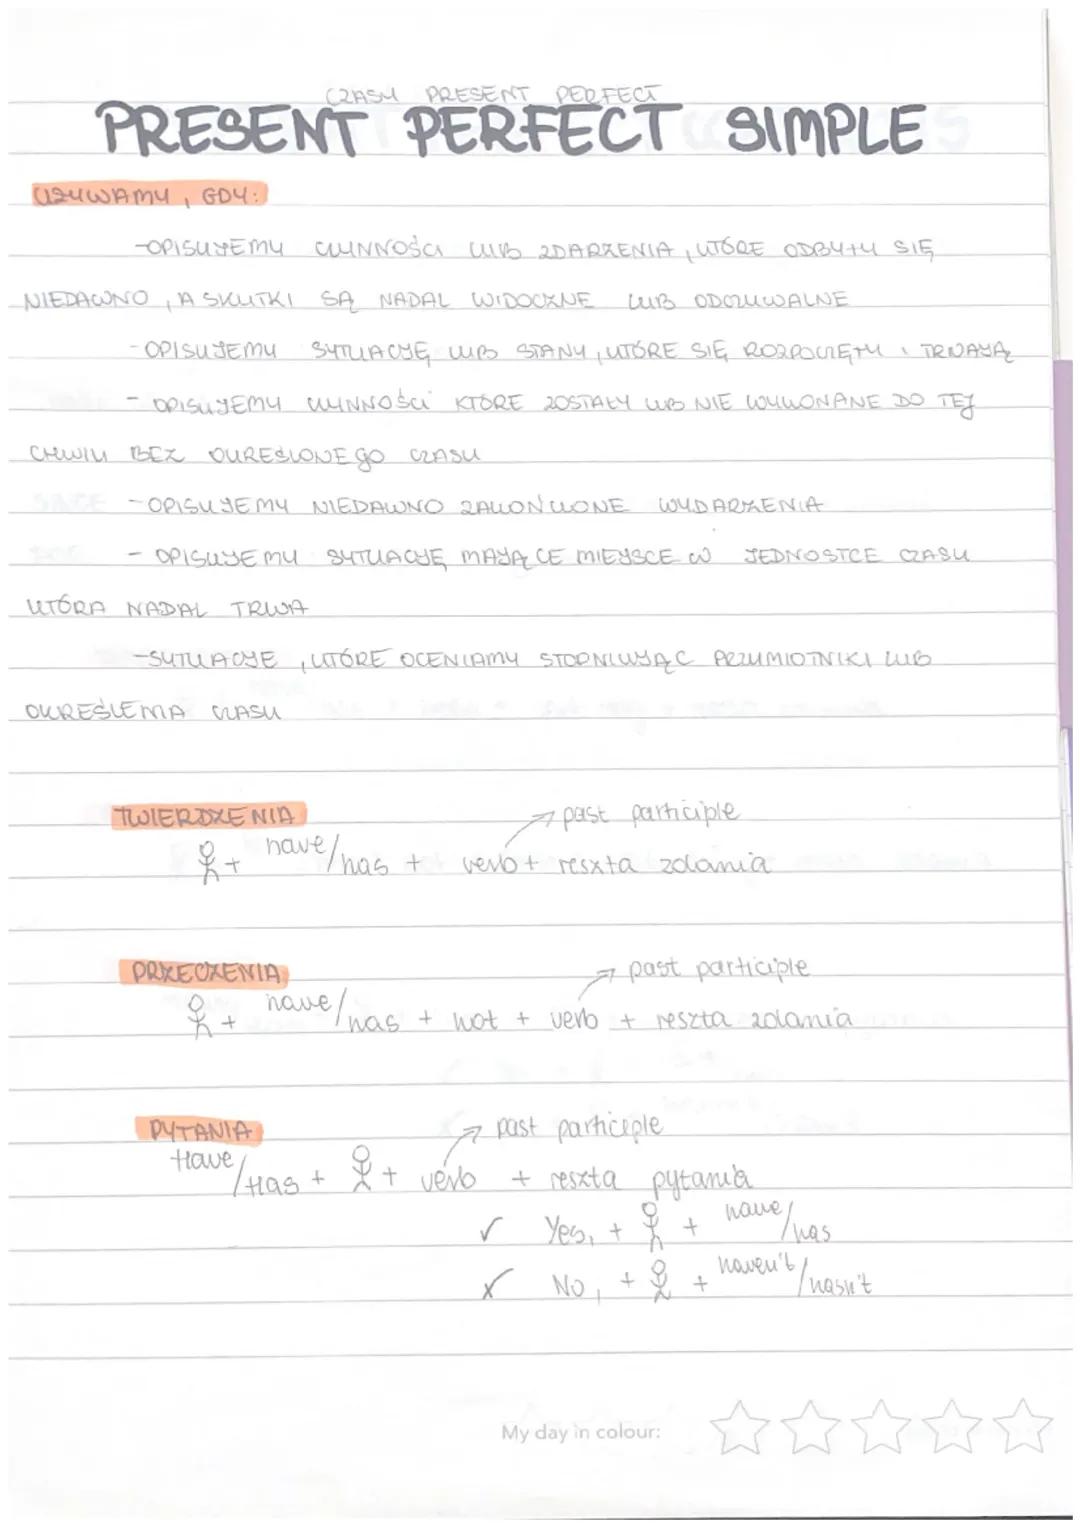 CZASY PRESENT PERFECT
PRESENT PERFECT SIMPLE
UŻYWAMY, GDY:
-OPISUJEMY CZYNNOŚCI LUB ZDARZENIA, KTÓRE ODBYŁY SIĘ
NIEDAWNO, A SKUTKI SĄ NADAL WIDOCZNE LUB ODCZUWALNE
-OPISUJEMY SYTUACJĘ LUB STANY, KTÓRE SIĘ ROZPOCZĘŁY I TRWAJĄ
- OPISUJEMY CZYNNOŚCI KTÓRE ZOSTAŁY LUB NIE WYKONANE DO TEJ
CHWILI BEZ OKREŚLONEGO CZASU
-OPISUJEMY NIEDAWNO ZAKOŃCZONE WYDARZENIA
- OPISUJEMY SYTUACJĘ MAJĄCE MIEJSCE W JEDNOSTCE CZASU
KTÓRA NADAL TRWA
-SYTUACJE, KTÓRE OCENIAMY STOPNIUJĄC PRZYMIOTNIKI LUB
OKREŚLENIA CZASU
TWIERDZENIA
past participle
+ have/has + verb + reszta zdania
PRZECZENIA
past participle
+ have/has + not + verb + reszta zdania
PYTANIA
past participle
Have/Has + + verb + reszta pytania
✓ Yes, + + have/has
x No, + + haven't/hasn't
My day in colour: